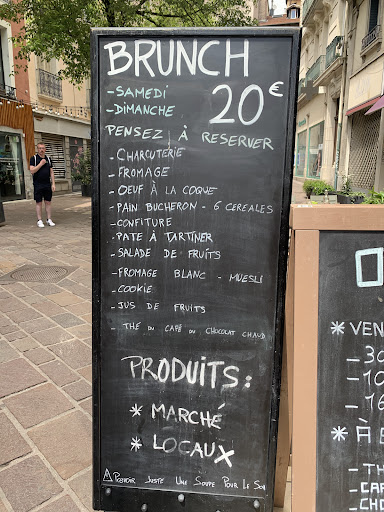 BRUNCH
- SAMEDI
- DIMANCHE
20€
PENSEZ À RESERVER
- CHARCUTERIE
- FROMAGE
- OEUF À LA COQUE
- PAIN BUCHERON - 6 CEREALES
- CONFITURE
- PATE À TARTINER
- SALADE DE FRUITS
- FROMAGE BLANC - MUESLI
- COOKIE
- JUS DE FRUITS
- THÉ OU CAFÉ OU CHOCOLAT CHAUD
PRODUITS :
* MARCHÉ
* LOCAUX
⚠ PREVOIR JUSTE UNE SOUPE POUR LE SOIR
* VEN
- 30
- 10
- 16
* À E
- TH
- CAF
- CHO